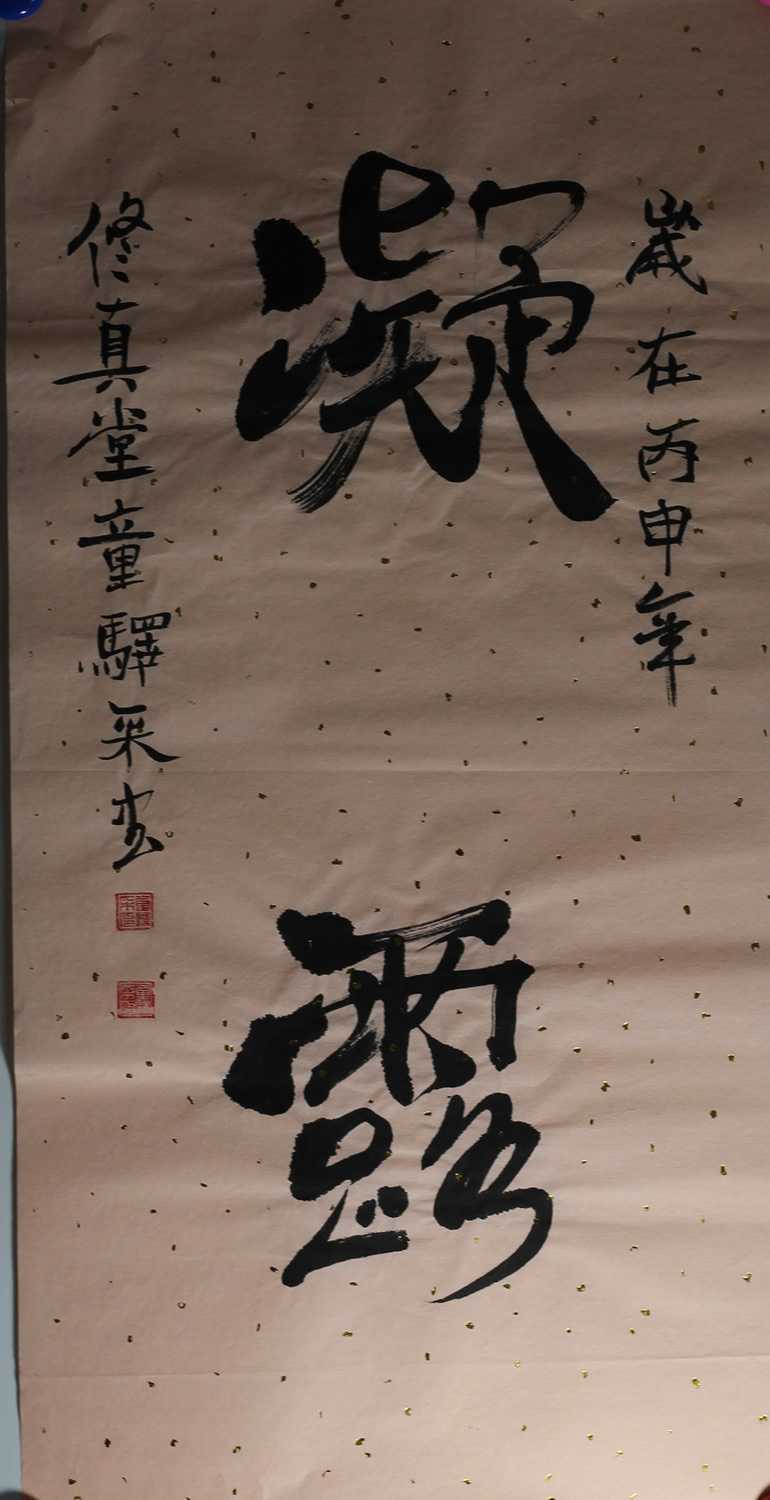 歲在丙申年
凝露
修真堂童驛采書